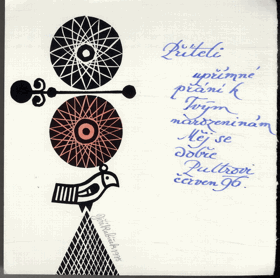 Příteli
upřímné
přání k
Tvým
narozeninám
Měj se
dobře
červen 96.